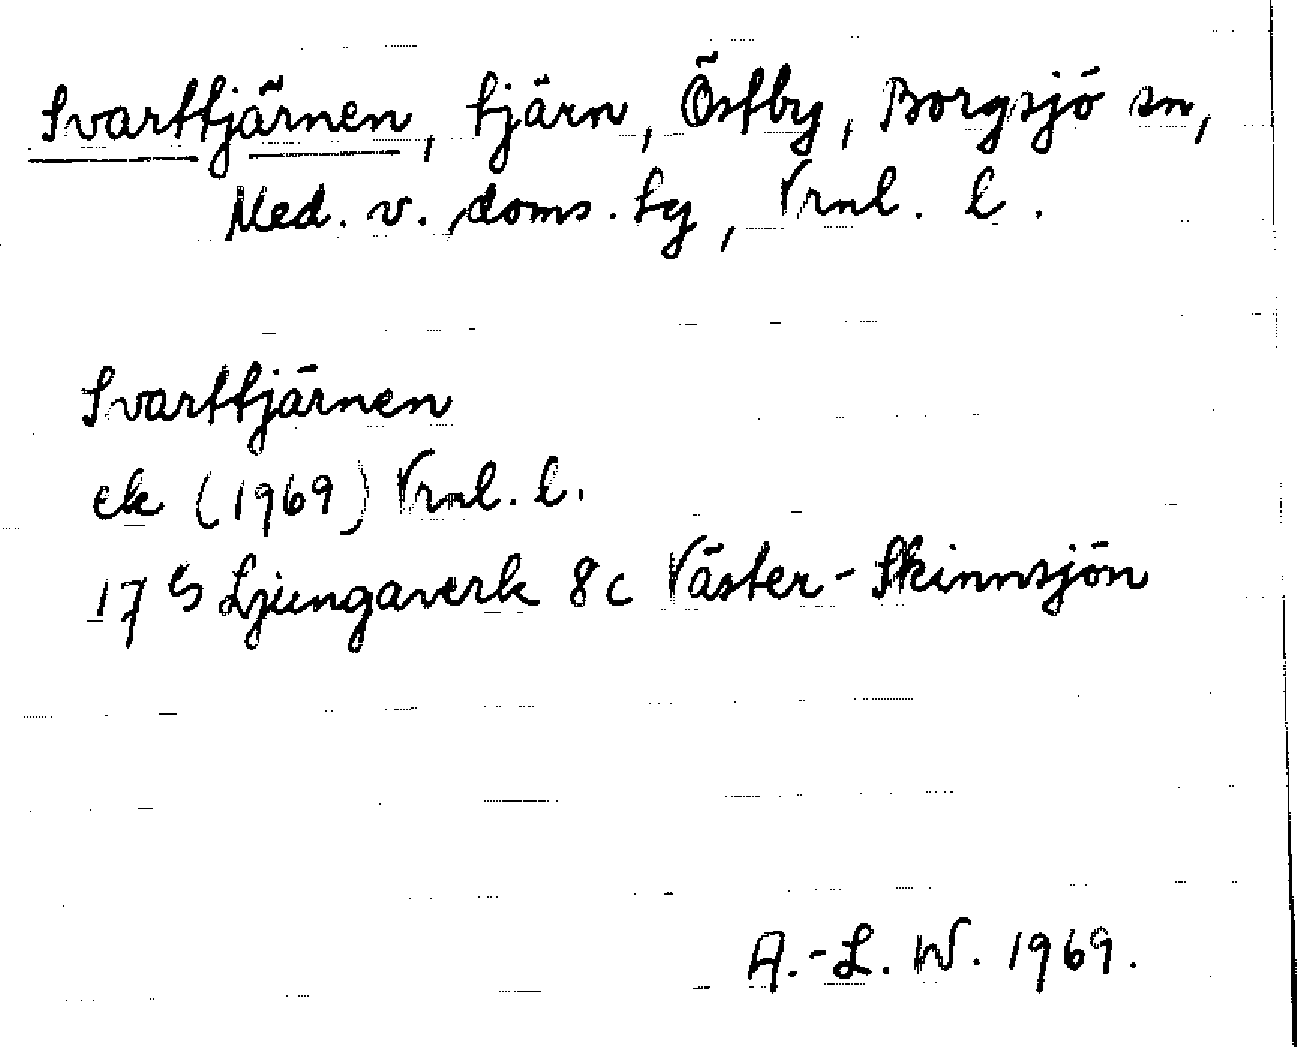 Svarttjärnen, tjärn, Östby, Borgsjö sn,
Med. v. doms. tg, Vrnl. l.
Svarttjärnen
ek (1969) Vrnl. l.
17 G Ljungaverk 8c Väster-Skinnsjön
A.-L. W. 1969.